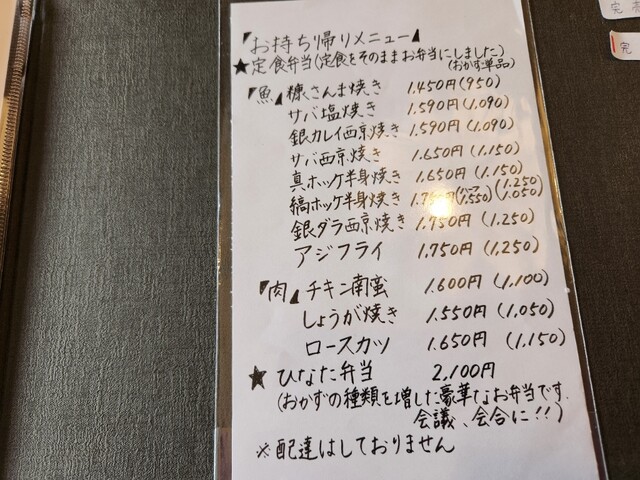 『お持ち帰りメニュー』
★定食弁当(定食をそのままお弁当にしました)
(おかず単品)
『魚』糠さんま焼き 1.450円(950)
サバ塩焼き 1.590円(1.090)
銀カレイ西京焼き 1.590円(1.090)
サバ西京焼き 1.650円(1.150)
真ホッケ半身焼き 1.650円(1.150)
縞ホッケ半身焼き (1.550)(1.250)(1.050)
銀ダラ西京焼き 1.750円(1.250)
アジフライ 1.750円(1.250)
『肉』チキン南蛮 1.600円(1.100)
しょうが焼き 1.550円(1.050)
ロースカツ 1.650円(1.150)
★ひなた弁当 2,100円
(おかずの種類を増した豪華なお弁当です.
会議、会合に!!)
※配達はしておりません
完売
完